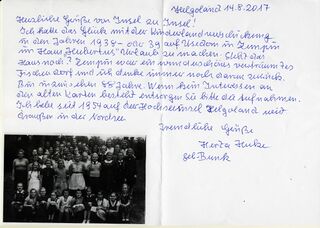 Helgoland 14.8.2017
Herzliche Grüße von Insel zu Insel!
Ich hatte das Glück mit der Kinderlandverschickung
in den Jahren 1938- oder 39 auf Usedom in Zempin
im Haus Hubertus Urlaub zu machen. Steht das
Haus noch? Zempin war ein verträumtes
Fischerdorf und ich denke immer noch daran zurück.
Bin inzwischen 88 Jahre. Wenn kein Interesse an
den alten Karten besteht entsorgen Sie bitte die Aufnahmen.
Ich lebe seit 1954 auf der Hochseeinsel Helgoland weit
draußen in der Nordsee.
Freundliche Grüße
Herta
geb Bunk